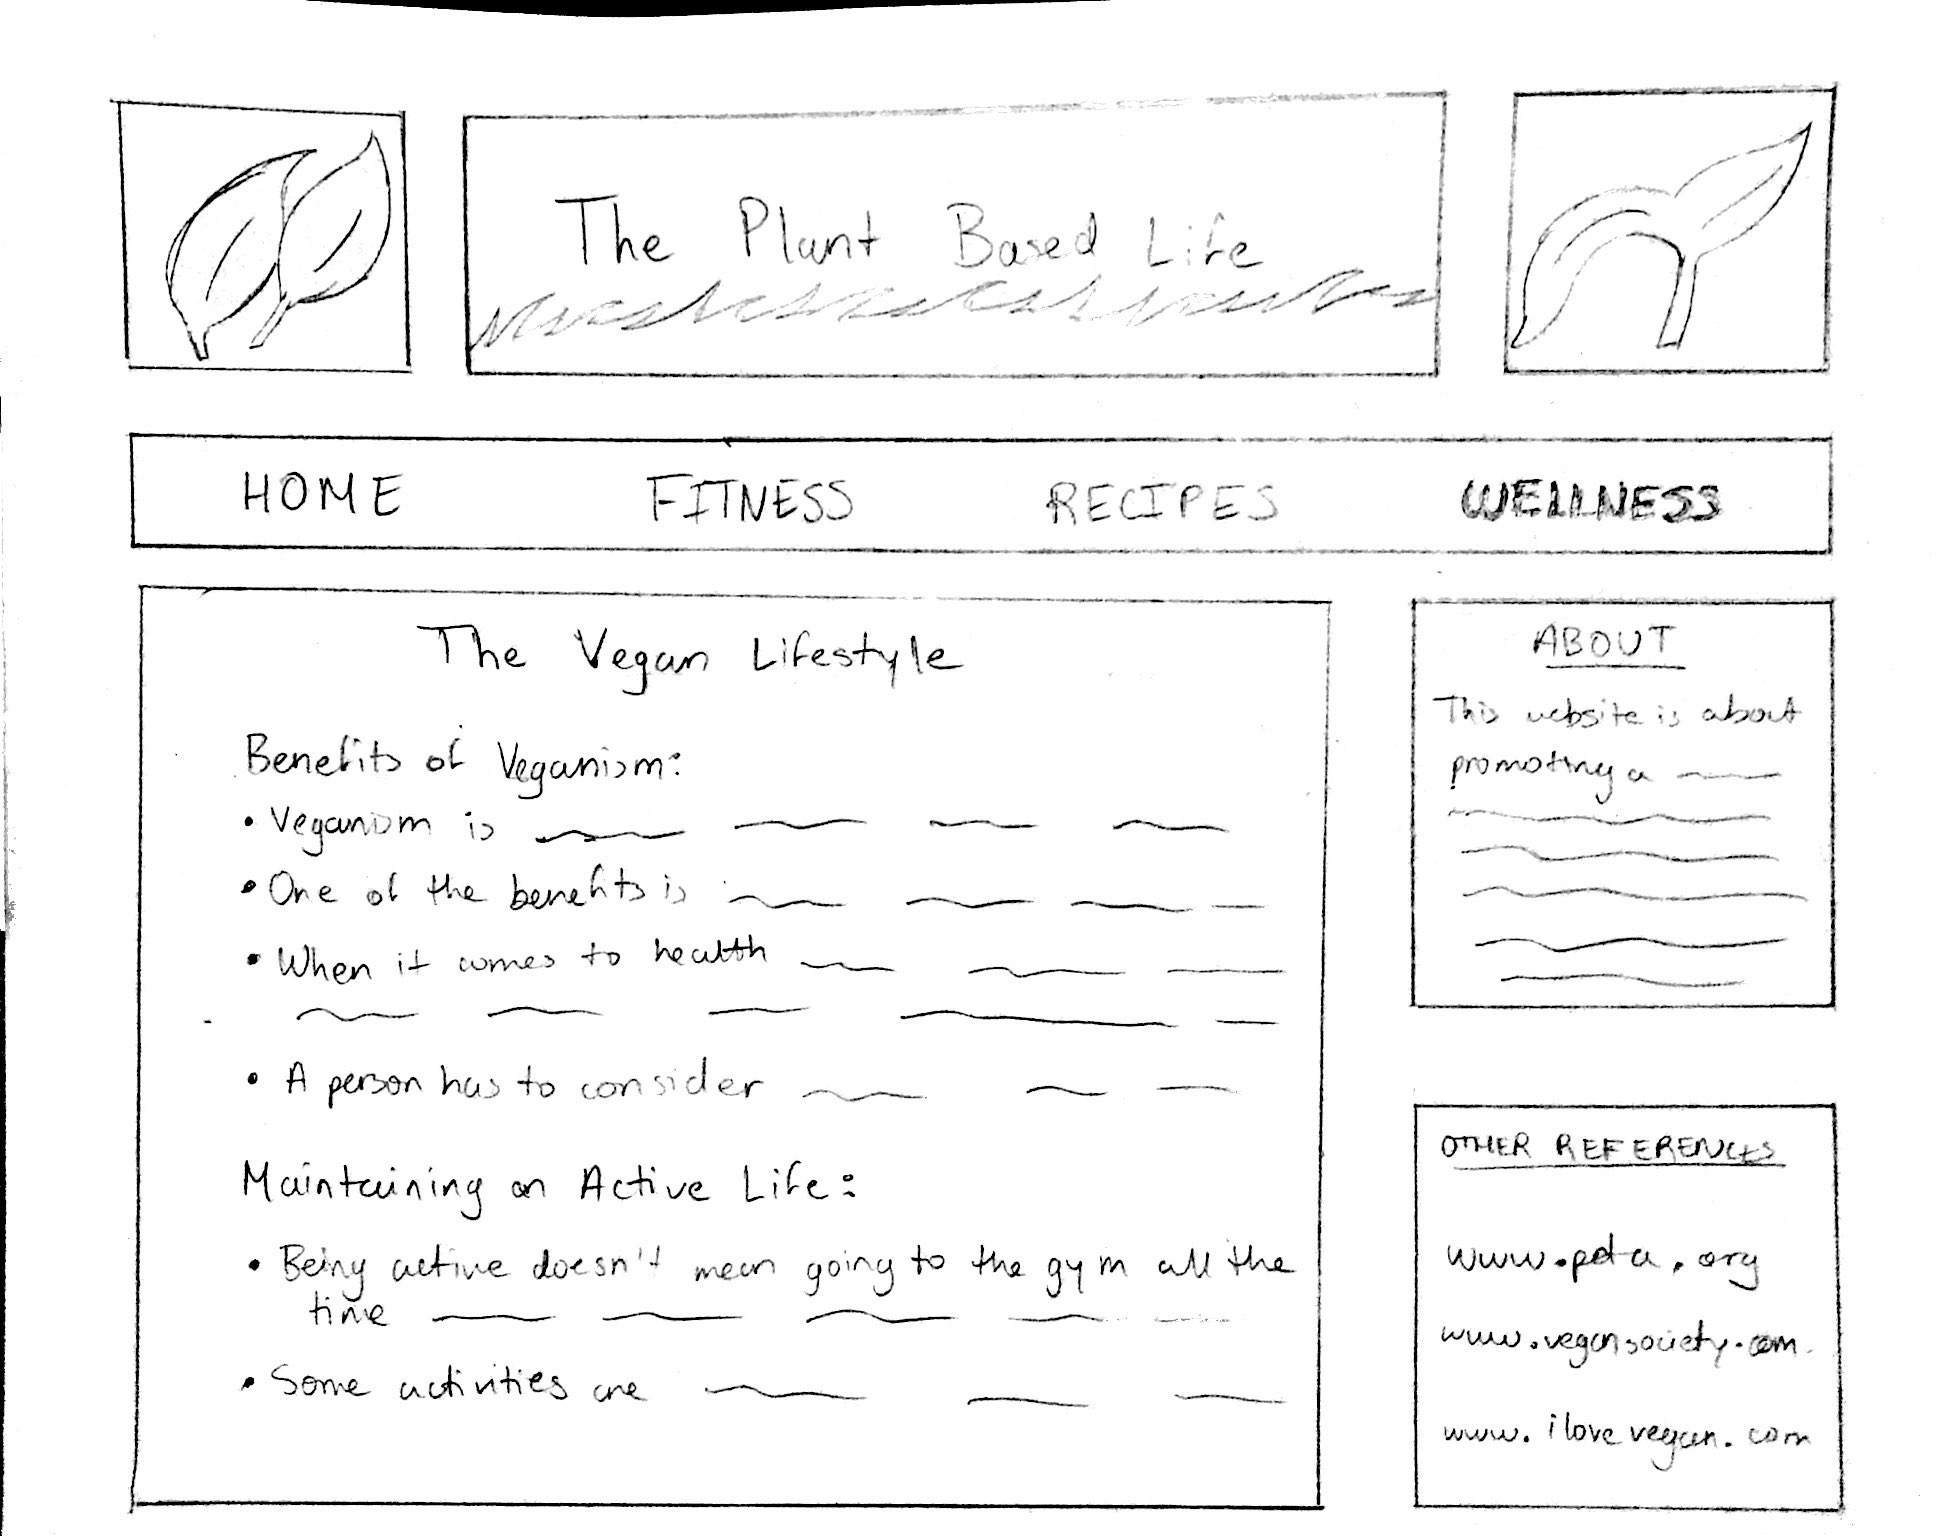 The Plant Based Life
HOME FITNESS RECIPES WELLNESS
The Vegan Lifestyle
Benefits of Veganism:
• Veganism is
• One of the benefits is
• When it comes to health
• A person has to consider
Maintaining an Active Life:
• Being active doesn't mean going to the gym all the
time
• Some activities are
ABOUT
This website is about
promoting a
OTHER REFERENCES
www.peta.org
www.vegansociety.com
www.ilovevegan.com